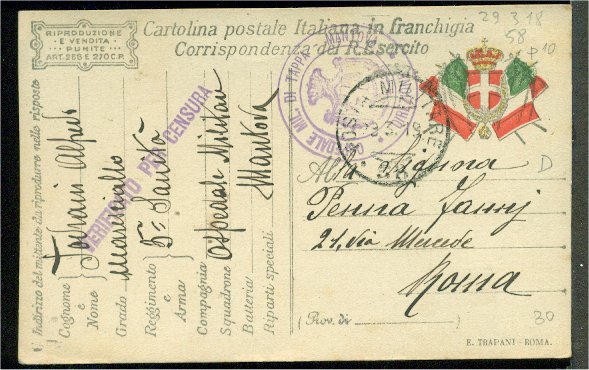 RIPRODUZIONE
E VENDITA
PUNITE
ART. 285 E 270 C.P.
Cartolina postale Italiana in franchigia
Corrispondenza del R. Esercito
29 3 18
58
p 10
POSTA MILITARE
OSPEDALE MIL. DI TAPPA MANTOVA
VERIFICATO PER CENSURA
Indirizzo del mittente da riprodurre nelle risposte
Cognome e Nome Alfredo
Grado Maresciallo
Reggimento e Arma 5a Sanità
Compagnia Ospedale Militare
Squadrone
Batteria Mantova
Riparti speciali
D
Alla Signora
Penna Fanny
21, via Mercede
Roma
(Prov. di )
30
E. TRAPANI - ROMA.